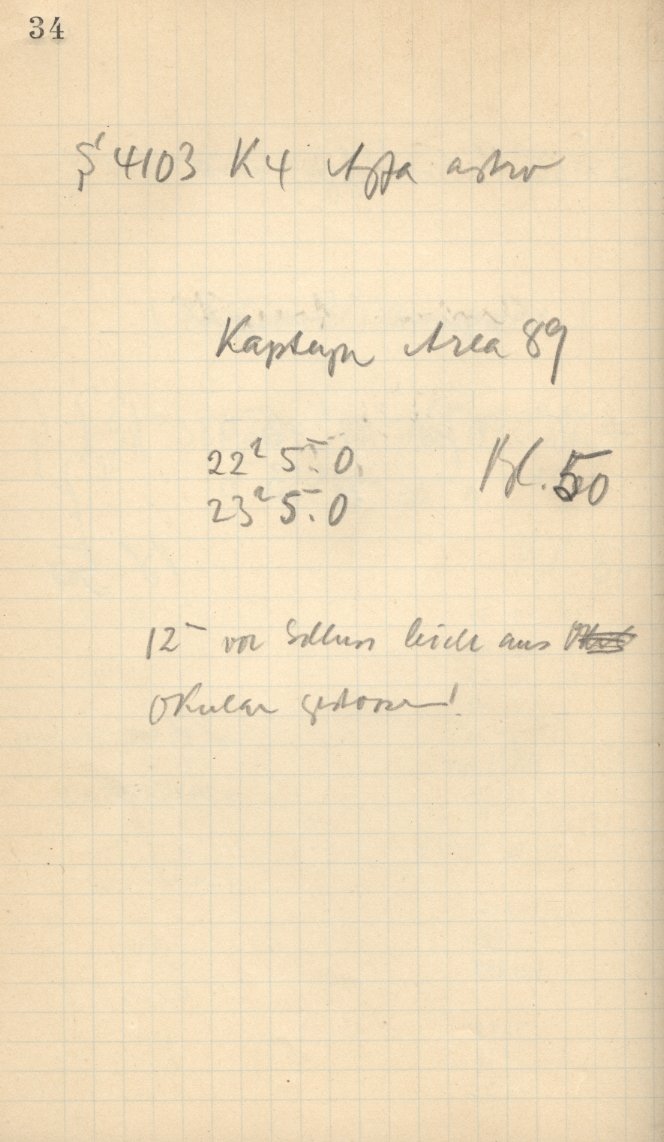 34
S 4103 K4 Agfa astro
Kapteyn Area 89
22h 5m.0 Bl. 50
23h 5m.0
12m vor Schluss leicht ans
Okular gestossen!